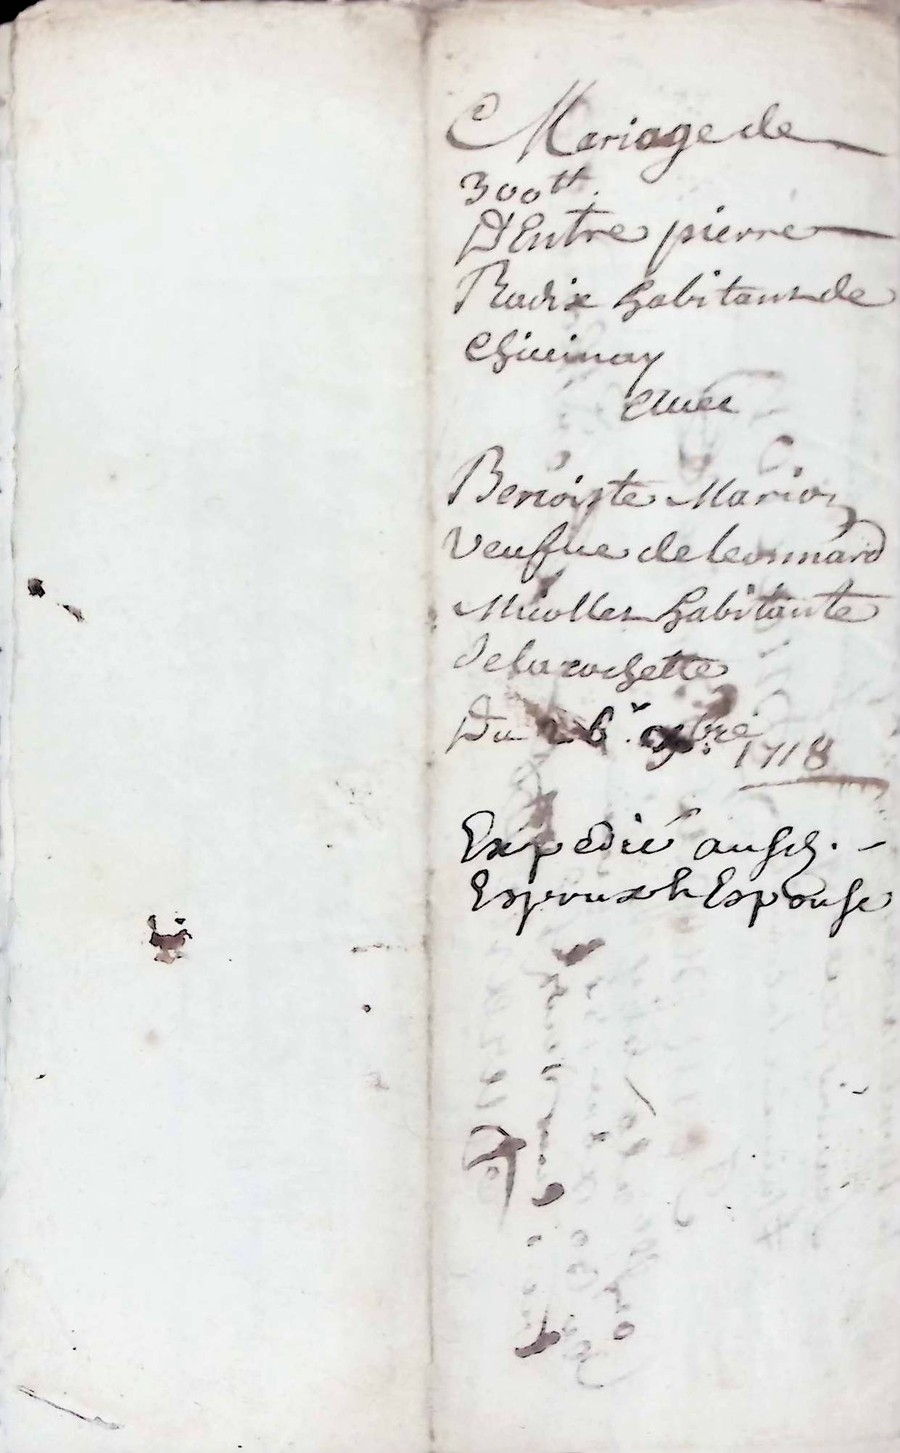 Mariage de
300tt
D'Entre pierre
Radix habitant de
Chiuinay
auec
Benoiste Marion
Veufue de leonnard
Nicollet habitante
de la rochette
Du 26e 9bre 1718
Expedié ausd.
Espoux & Espouse